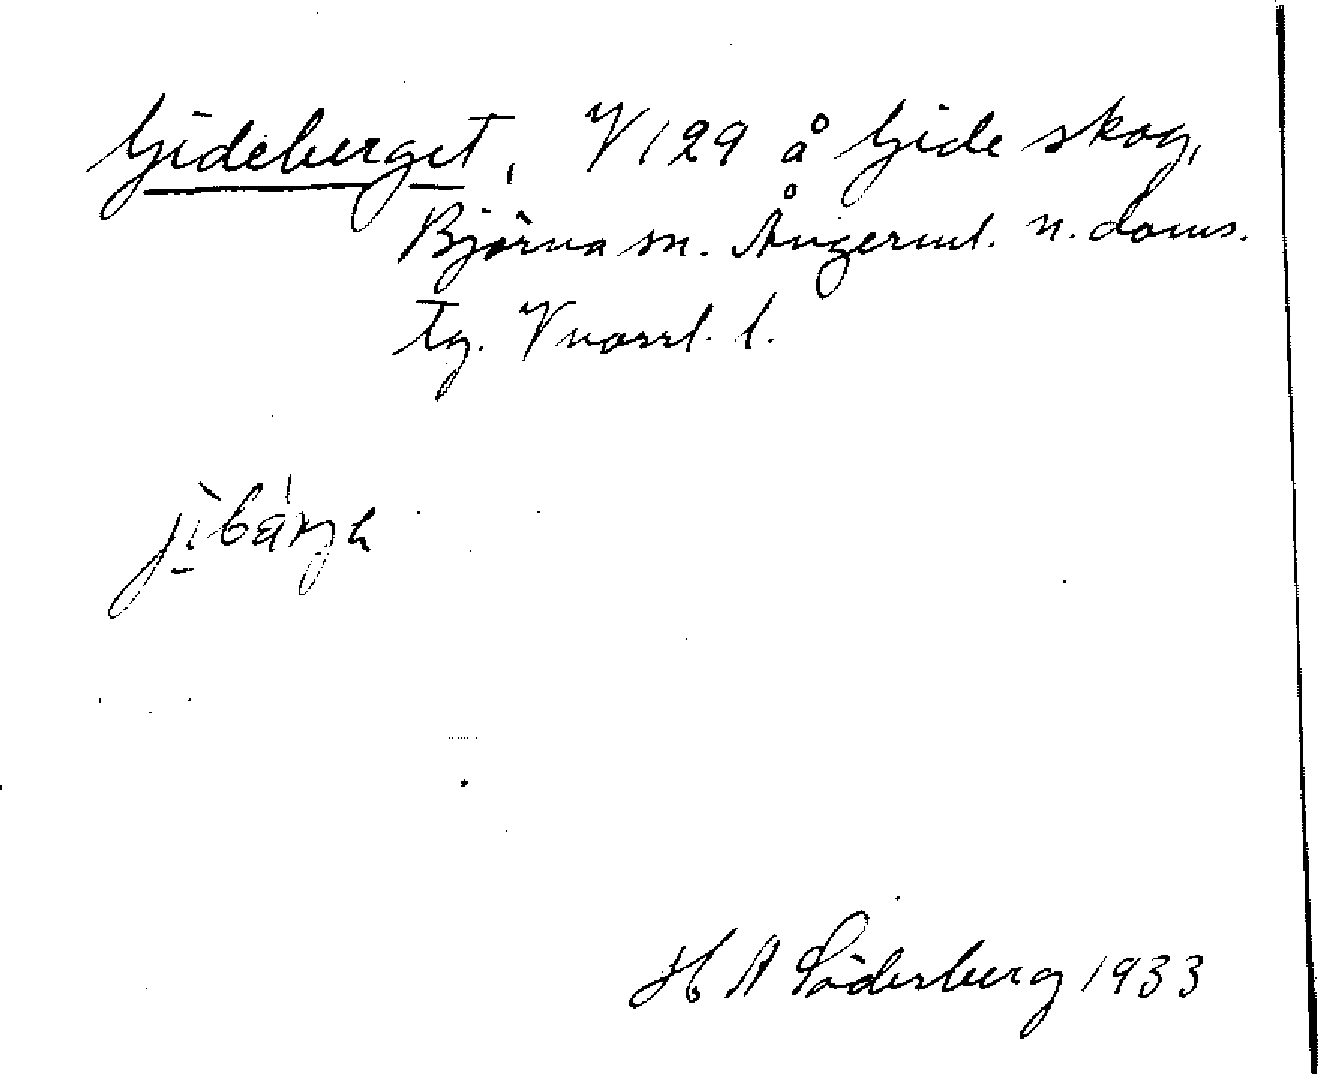 Gideberget, V129 å Gide skog,
Björna sn. Ångerml. n. doms.
tg. Vnorrl. l.
H A Söderberg 1933